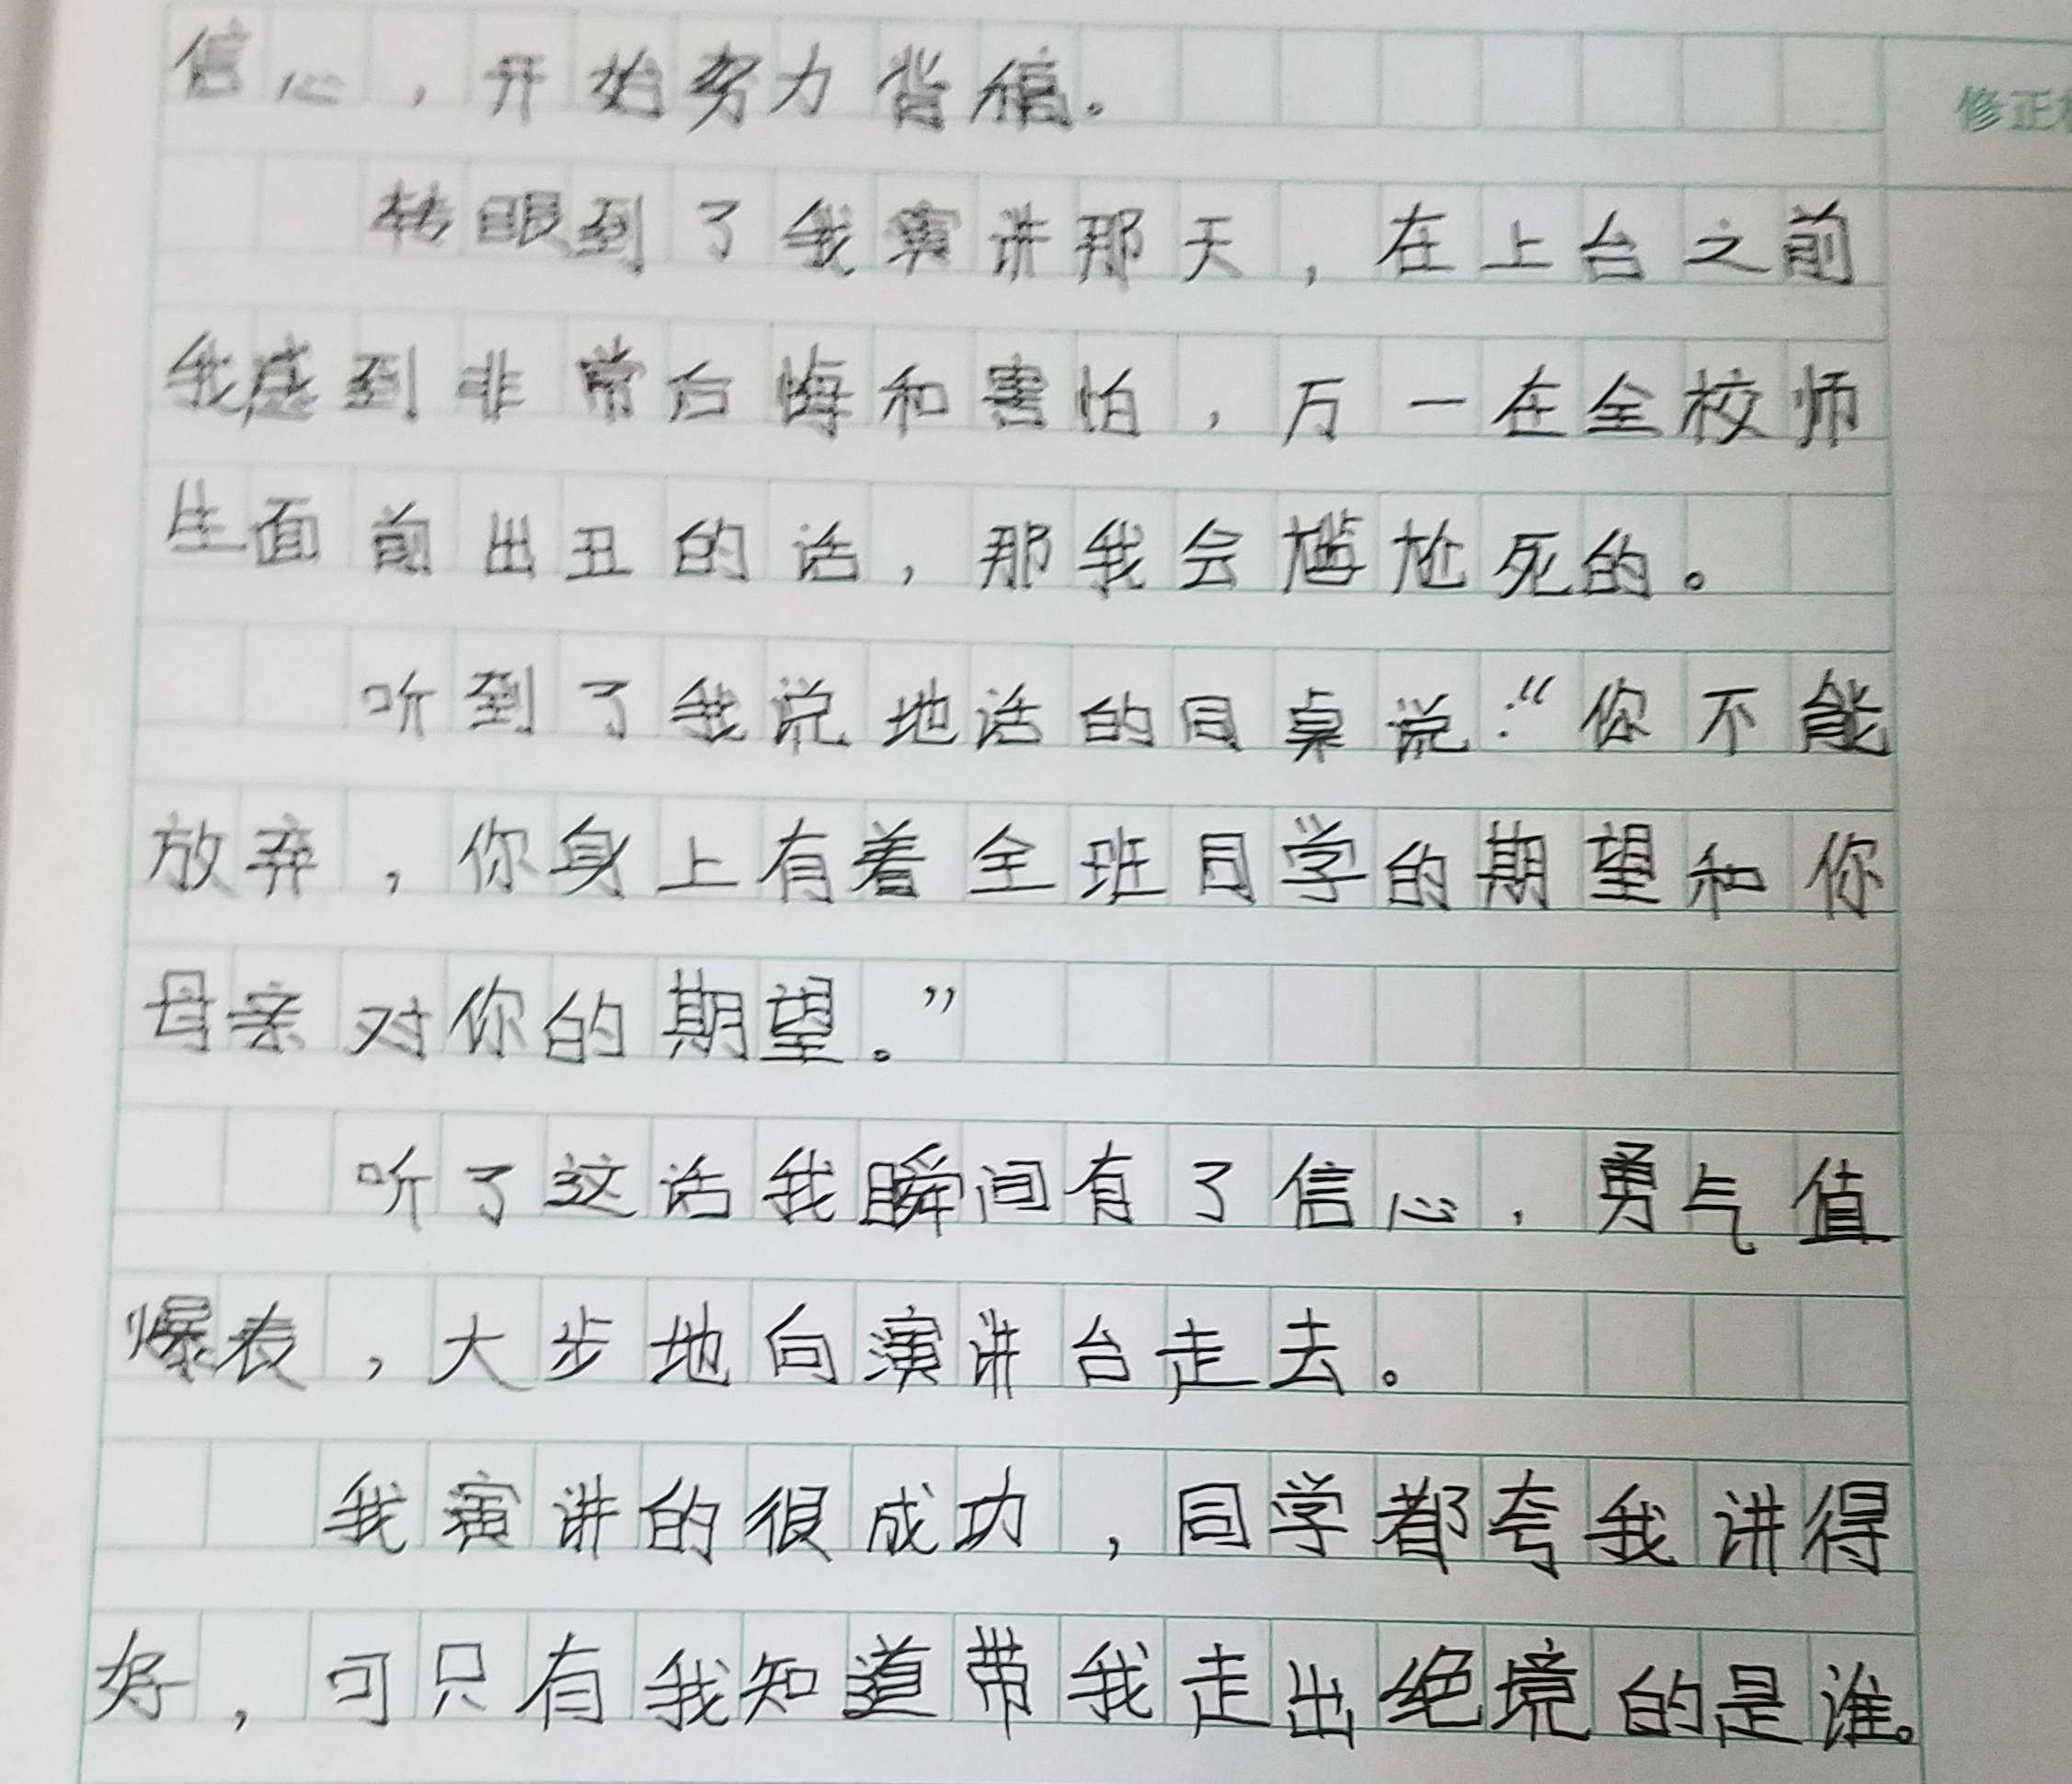 信心，开始努力背稿。
修正
转眼到了我演讲那天，在上台之前
我感到非常后悔和害怕，万一在全校师
生面前出丑的话，那我会尴尬死的。
听到了我说地话的同桌说：“你不能
放弃，你身上有着全班同学的期望和你
母亲对你的期望。”
听了这话我瞬间有了信心，勇气值
爆表，大步地向演讲台走去。
我演讲的很成功，同学都夸我讲得
好，可只有我知道带我走出绝境的是谁。